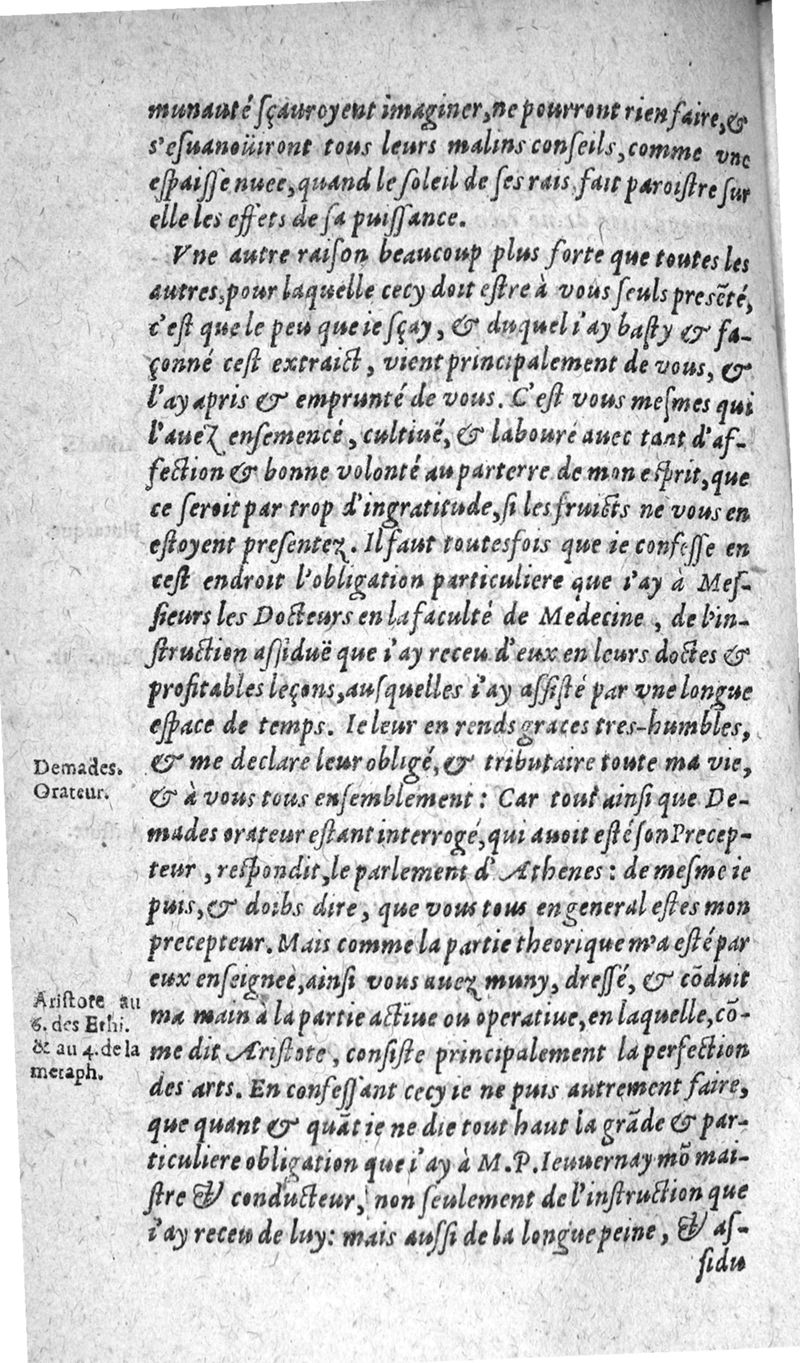 munauté sçauroyent imaginer, ne pourront rien faire, &
s'esuanoüiront tous leurs malins conseils, comme vne
espaisse nuee, quand le soleil de ses rais fait paroistre sur
elle les effets de sa puissance.
Vne autre raison beaucoup plus forte que toutes les
autres, pour laquelle cecy doit estre à vous seuls presẽté,
c'est que le peu que ie sçay, & duquel i'ay basty & fa-
çonné cest extraict, vient principalement de vous, &
l'ay apris & emprunté de vous. C'est vous mesmes qui
l'auez ensemencé, cultiué, & labouré auec tant d'af-
fection & bonne volonté au parterre de mon esprit, que
ce seroit par trop d'ingratitude, si les fruicts ne vous en
estoyent presentez. Il faut toutesfois que ie confesse en
cest endroit l'obligation particuliere que i'ay à Mes-
sieurs les Docteurs en la faculté de Medecine, de l'in-
struction assiduë que i'ay receu d'eux en leurs doctes &
profitables leçons, ausquelles i'ay assisté par vne longue
espace de temps. Ie leur en rends graces tres-humbles,
& me declare leur obligé, & tributaire toute ma vie,
Demades.
Orateur.
& à vous tous ensemblement: Car tout ainsi que De-
mades orateur estant interrogé, qui auoit esté son Precep-
teur, respondit, le parlement d'Athenes: de mesme ie
puis, & doibs dire, que vous tous en general estes mon
precepteur. Mais comme la partie theorique m'a esté par
eux enseignee, ainsi vous auez muny, dressé, & cõduit
Aristote au
6. des Ethi.
& au 4. de la
metaph.
ma main à la partie actiue ou operatiue, en laquelle, cõ-
me dit Aristote, consiste principalement la perfection
des arts. En confessant cecy ie ne puis autrement faire,
que quant & quãt ie ne die tout haut la grãde & par-
ticuliere obligation que i'ay à M. P. Ieuuernay mõ mai-
stre & conducteur, non seulement de l'instruction que
i'ay receu de luy: mais aussi de la longue peine, & as-
sidu